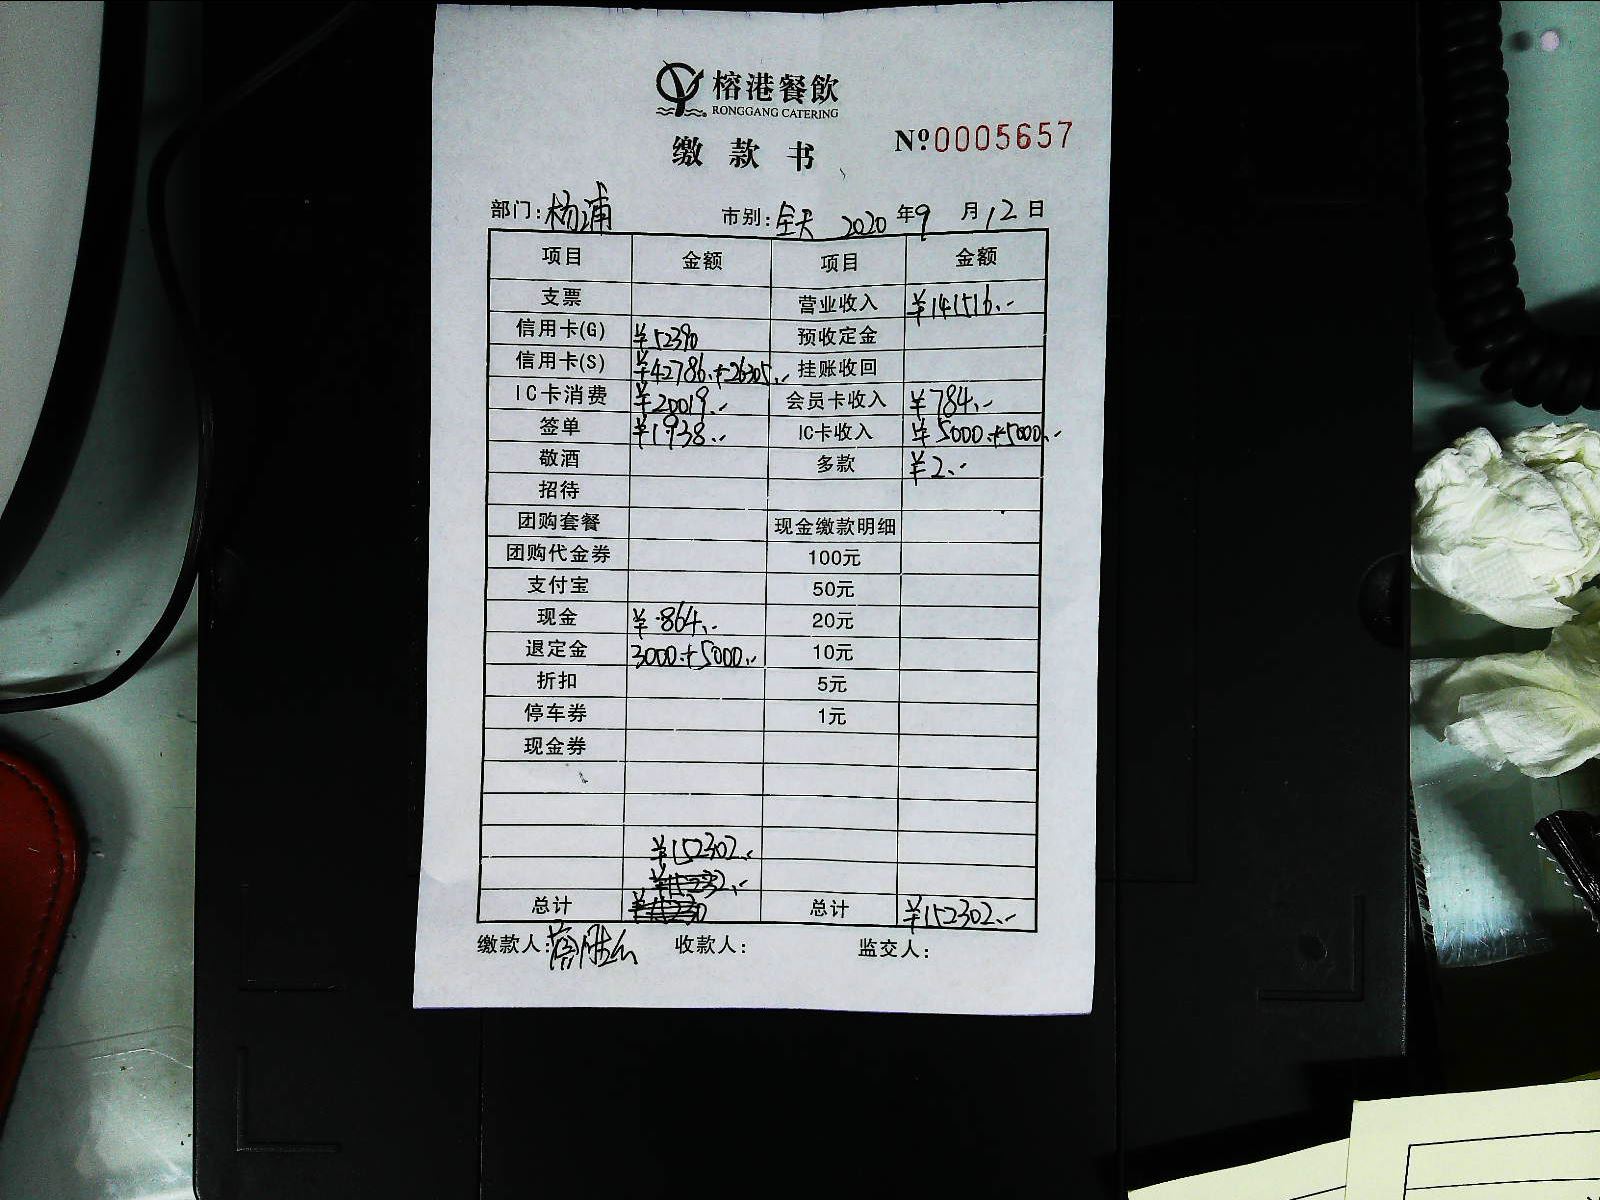 榕港餐飲
RONGGANG CATERING
缴款书
№0005657
部门:杨浦 市别:全天 2020年9月12日
项目 金额 项目 金额
支票 营业收入 ¥141516.-
信用卡(G) ¥52390 预收定金
信用卡(S) ¥42786.+26305.- 挂账收回
IC卡消费 ¥20019.- 会员卡收入 ¥784.-
签单 ¥1938.- IC卡收入 ¥5000.+5000.-
敬酒 多款 ¥2.-
招待
团购套餐 现金缴款明细
团购代金券 100元
支付宝 50元
现金 ¥864.- 20元
退定金 3000.+5000.- 10元
折扣 5元
停车券 1元
现金券
¥152302.-
总计 总计 ¥152302.-
缴款人: 收款人: 监交人: